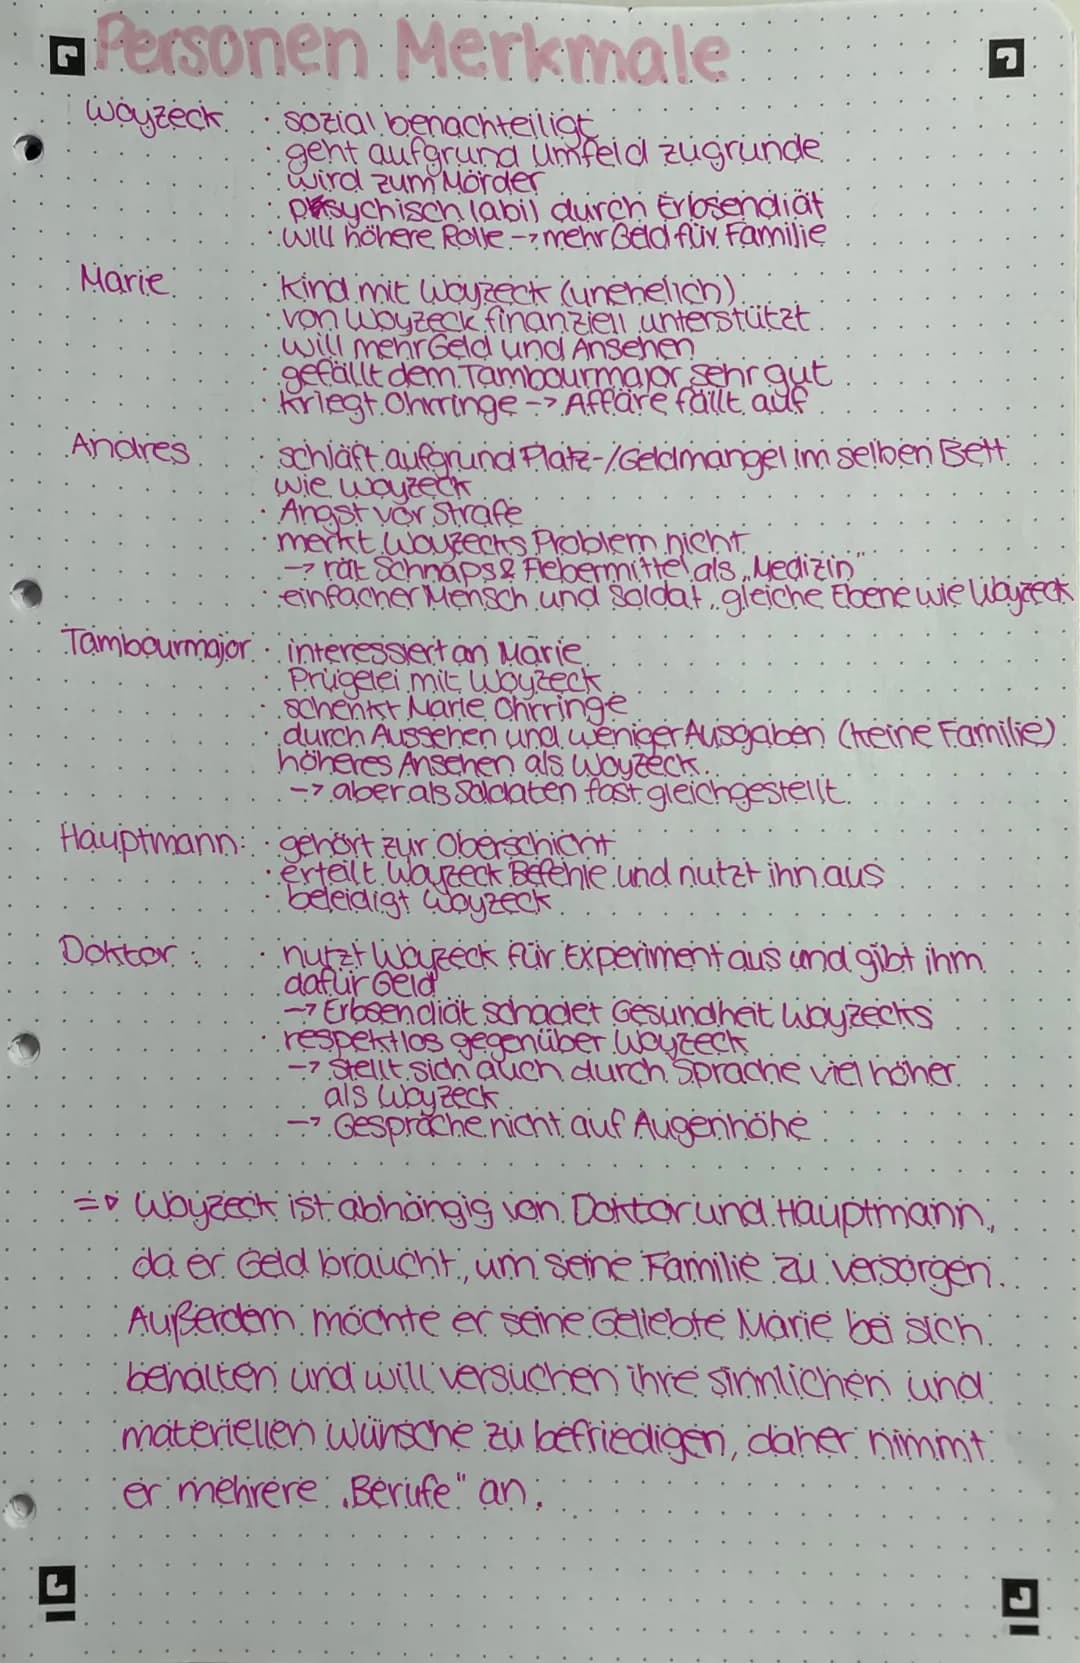 Personen Merkmale
Woyzeck : · sozial benachteiligt
· geht aufgrund Umfeld zugrunde
· wird zum Mörder
· psychisch labil durch Erbsendiät
· will höhere Rolle -> mehr Geld für Familie
Marie : · Kind mit Woyzeck (unehelich)
· von Woyzeck finanziell unterstützt
· will mehr Geld und Ansehen
· gefällt dem Tambourmajor sehr gut
· kriegt Ohrringe -> Affäre fällt auf
Andres : · schläft aufgrund Platz-/Geldmangel im selben Bett
wie Woyzeck
· Angst vor Strafe
· merkt Woyzecks Problem nicht
-> rät Schnaps & Fiebermittel als „Medizin"
· einfacher Mensch und Soldat, gleiche Ebene wie Woyzeck
Tambourmajor : · interessiert an Marie
· Prügelei mit Woyzeck
· schenkt Marie Ohrringe
· durch Aussehen und weniger Ausgaben (keine Familie)
höheres Ansehen als Woyzeck
-> aber als Soldaten fast gleichgestellt
Hauptmann: · gehört zur Oberschicht
· erteilt Woyzeck Befehle und nutzt ihn aus
· beleidigt Woyzeck
Doktor : · nutzt Woyzeck für Experiment aus und gibt ihm
dafür Geld
-> Erbsendiät schadet Gesundheit Woyzecks
· respektlos gegenüber Woyzeck
-> stellt sich auch durch Sprache viel höher
als Woyzeck
-> Gespräche nicht auf Augenhöhe
=> Woyzeck ist abhängig von Doktor und Hauptmann,
da er Geld braucht, um seine Familie zu versorgen.
Außerdem möchte er seine Geliebte Marie bei sich
behalten und will versuchen ihre sinnlichen und
materiellen Wünsche zu befriedigen, daher nimmt
er mehrere „Berufe" an.